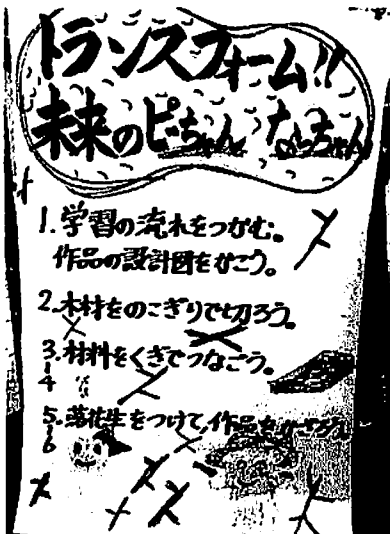 トランスフォーム!!
未来のピーちゃん なっちゃん
1. 学習の流れをつかむ。
作品の設計図をかこう。
2. 木材をのこぎりで切ろう。
3. 材料をくぎでつなごう。
4
5. 落花生をつけて、作品をかざろう
6